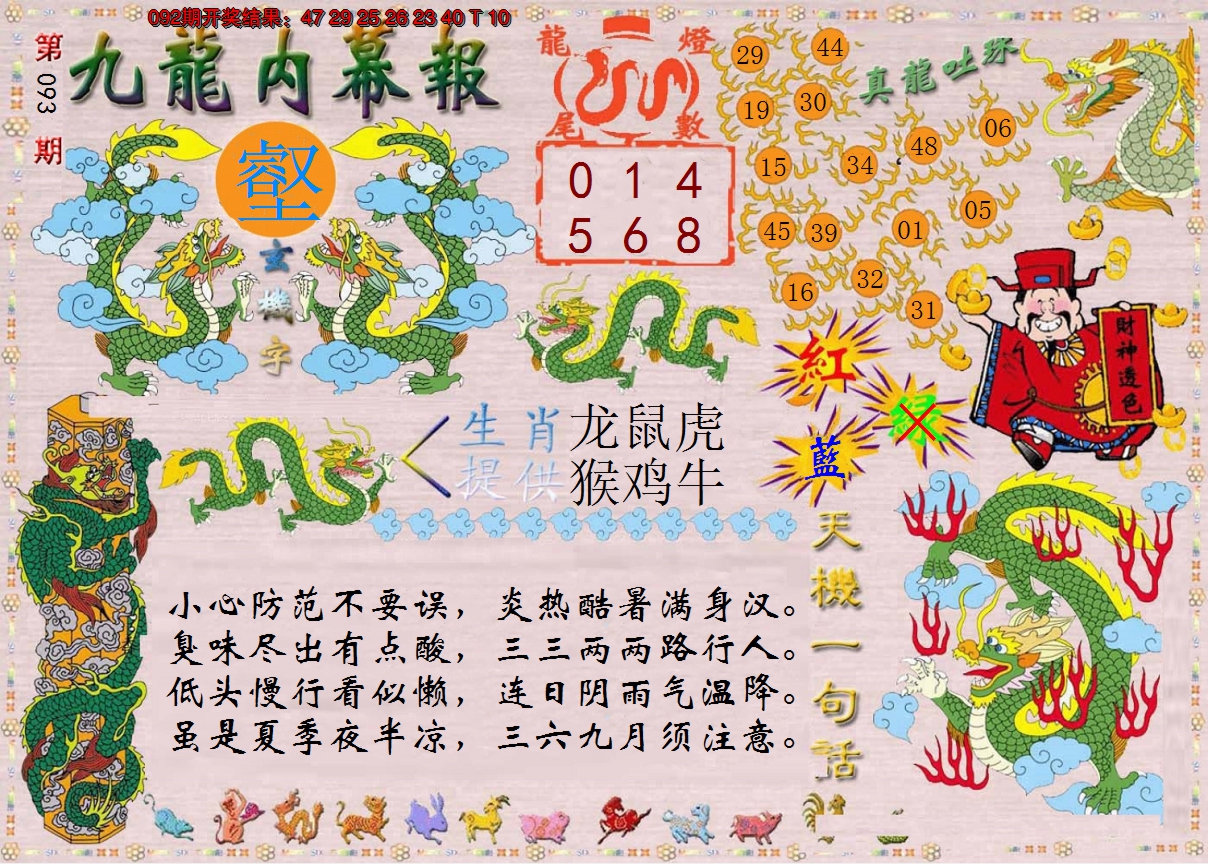 092期开奖结果：47 29 25 26 23 40 T 10
第093期
九龍内幕報
壑
玄機字
龍燈
尾數
0 1 4
5 6 8
真龍吐珠
29 44
19 30
15 34 48 06
45 39 01 05
16 32 31
財神透色
紅
綠
藍
生肖提供
龙鼠虎
猴鸡牛
天機一句話
小心防范不要误，炎热酷暑满身汉。
臭味尽出有点酸，三三两两路行人。
低头慢行看似懒，连日阴雨气温降。
虽是夏季夜半凉，三六九月须注意。